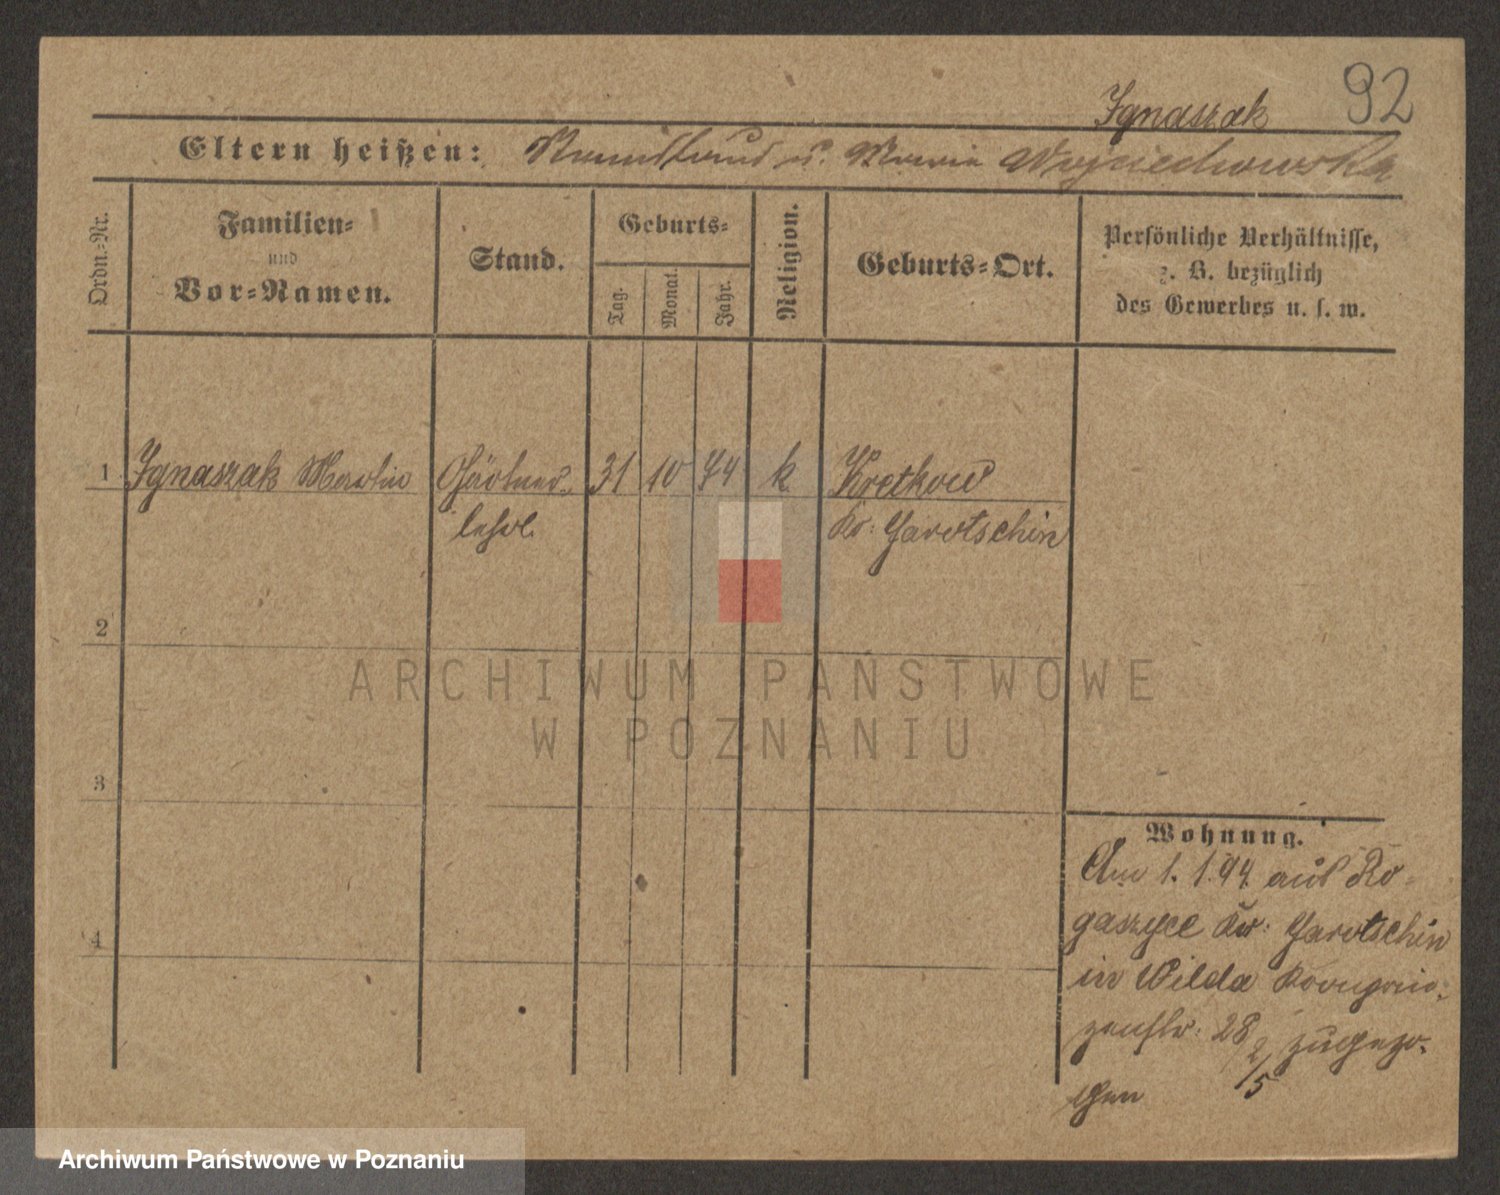 92
Ignaszak
Eltern heißen: u. Marie Wojciechowska
Ordn.-Nr.
Familien-
und
Vor-Namen.
Stand.
Geburts-
Tag.
Monat.
Jahr.
Religion.
Geburts-Ort.
Persönliche Verhältnisse,
z. B. bezüglich
des Gewerbes u. s. w.
1 Ignaszak Martin Gärtner- 31 10 74 k Kretkow
lehrl. Kr: Jarotschin
2
3
4
Wohnung.
Am 1. 1. 94 aus Ro-
gaszyce Kr: Jarotschin
in Wilda Kronprin-
zenstr: 28 zugezo-
gen 2/5
ARCHIWUM PAŃSTWOWE
W POZNANIU
Archiwum Państwowe w Poznaniu